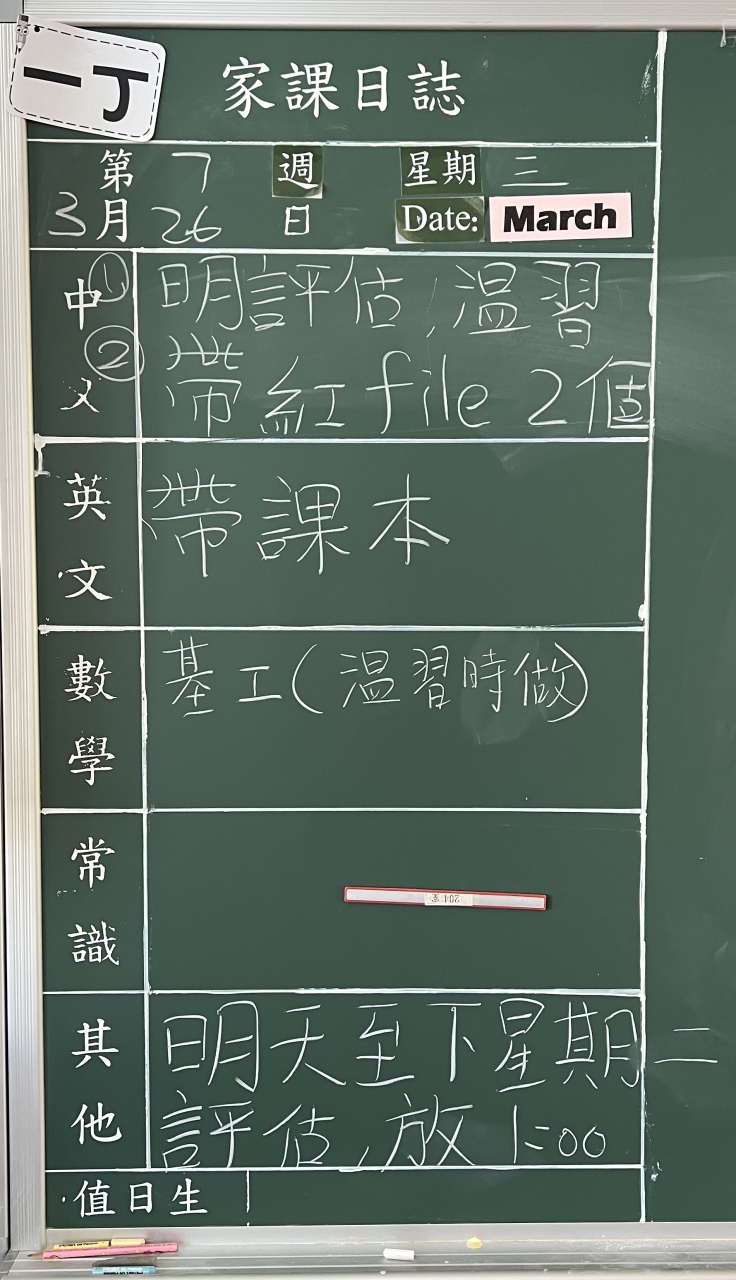 一丁
家課日誌
第 7 週 星期 三
3月 26 日 Date: March
中文 ① 明評估，温習
② 帶紅file 2個
英文 帶課本
數學 基工(温習時做)
常識
204室
其他 明天至下星期二
評估，放1:00
值日生